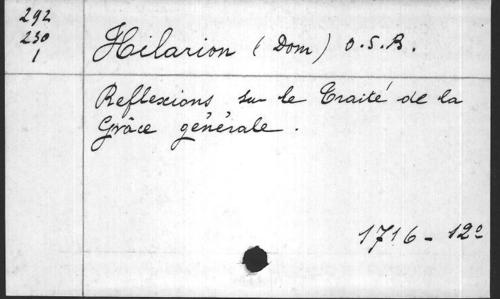 292
230
1
Hilarion (Dom) O.S.B.
Reflexions sur le Traité de la
Grâce générale.
1716 - 12º